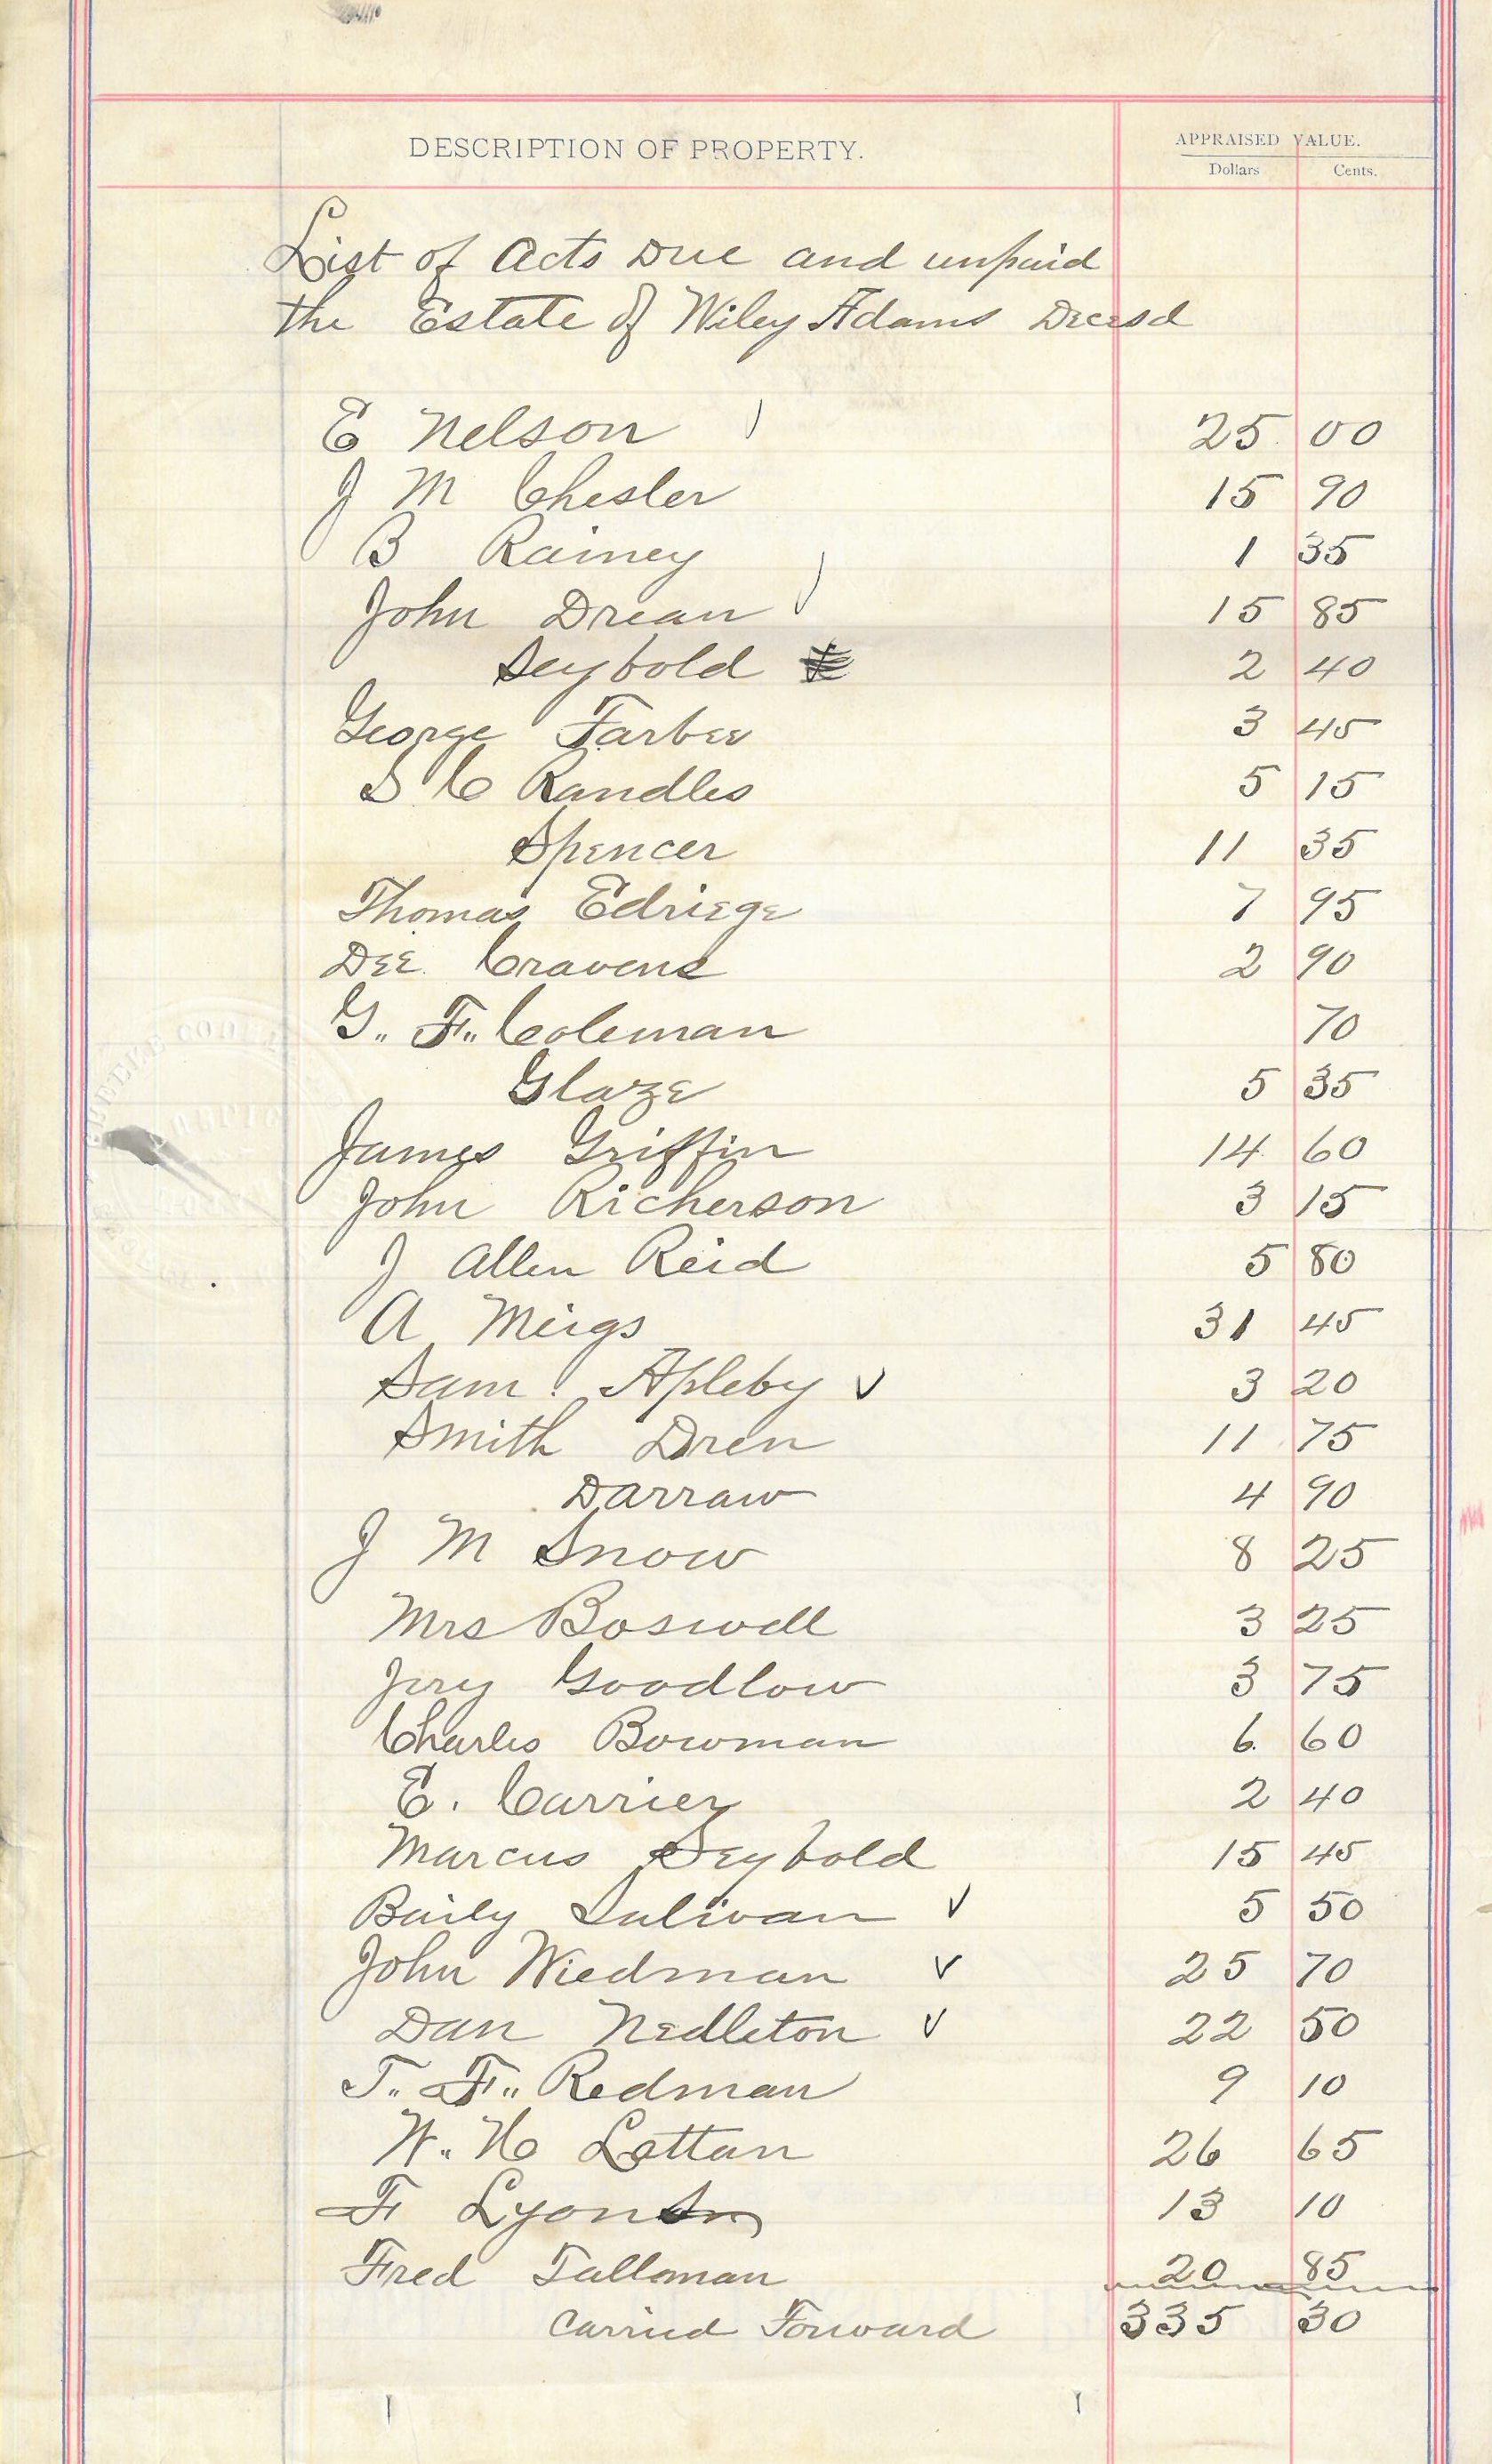 DESCRIPTION OF PROPERTY.
APPRAISED VALUE.
Dollars Cents.
List of Acts Due and unpaid
the Estate of Wiley Adams Decesd
E Nelson 25 00
J M Chesler 15 90
B Rainey 1 35
John Drean 15 85
Seybold 2 40
George Farbee 3 45
S C Randles 5 15
Spencer 11 35
Thomas Edriege 7 95
Dee Cravens 2 90
G. F. Coleman 70
Glaze 5 35
James Griffin 14 60
John Richerson 3 15
J Allen Reid 5 80
A Meigs 31 45
Sam. Apleby ✓ 3 20
Smith Dren 11 75
Darraw 4 90
J M Snow 8 25
Mrs Boswell 3 25
Jery Goodlow 3 75
Charles Bowman 6 60
E. Carrier 2 40
Marcus Seybold 15 45
Baily Sulivan ✓ 5 50
John Wiedman ✓ 25 70
Dan Nedleton ✓ 22 50
T. F. Redman 9 10
W. H Lottan 26 65
F Lyons 13 10
Fred Talloman 20 85
Carried Forward 335 30